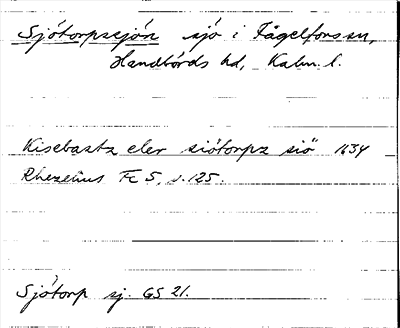 Sjötorpssjön sjö i Fågelfors sn,
Handbörds hd, Kalm. l.
Kisebastz eler siötorpz siö 1634
Rhezelius Fc 5, s. 125.
Sjötorp sj. GS 21.